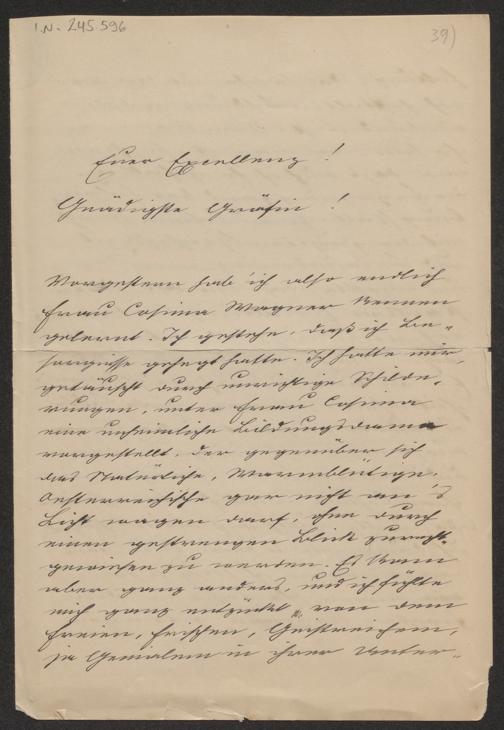 I.N. 245.596
39)
Euer Excellenz!
Gnädigste Gräfin!
Vorgestern hab' ich also endlich
Frau Cosima Wagner kennen
gelernt. Ich gestehe, daß ich Be-
sorgnisse gehegt hatte. Ich hatte mir,
getäuscht durch unrichtige Schilde-
rungen, unter Frau Cosima
eine unheimliche Bildungsdame
vorgestellt, der gegenüber sich
das Natürliche, Warmblütige,
Oesterreichische gar nicht an's
Licht wagen darf, ohne durch
einen gestrengen Blick zurecht-
gewiesen zu werden. Es kam
aber ganz anders, und ich fühlte
mich ganz entzückt von dem
Freien, Frischen, Geistreichen,
ja Genialen in ihrer Unter-